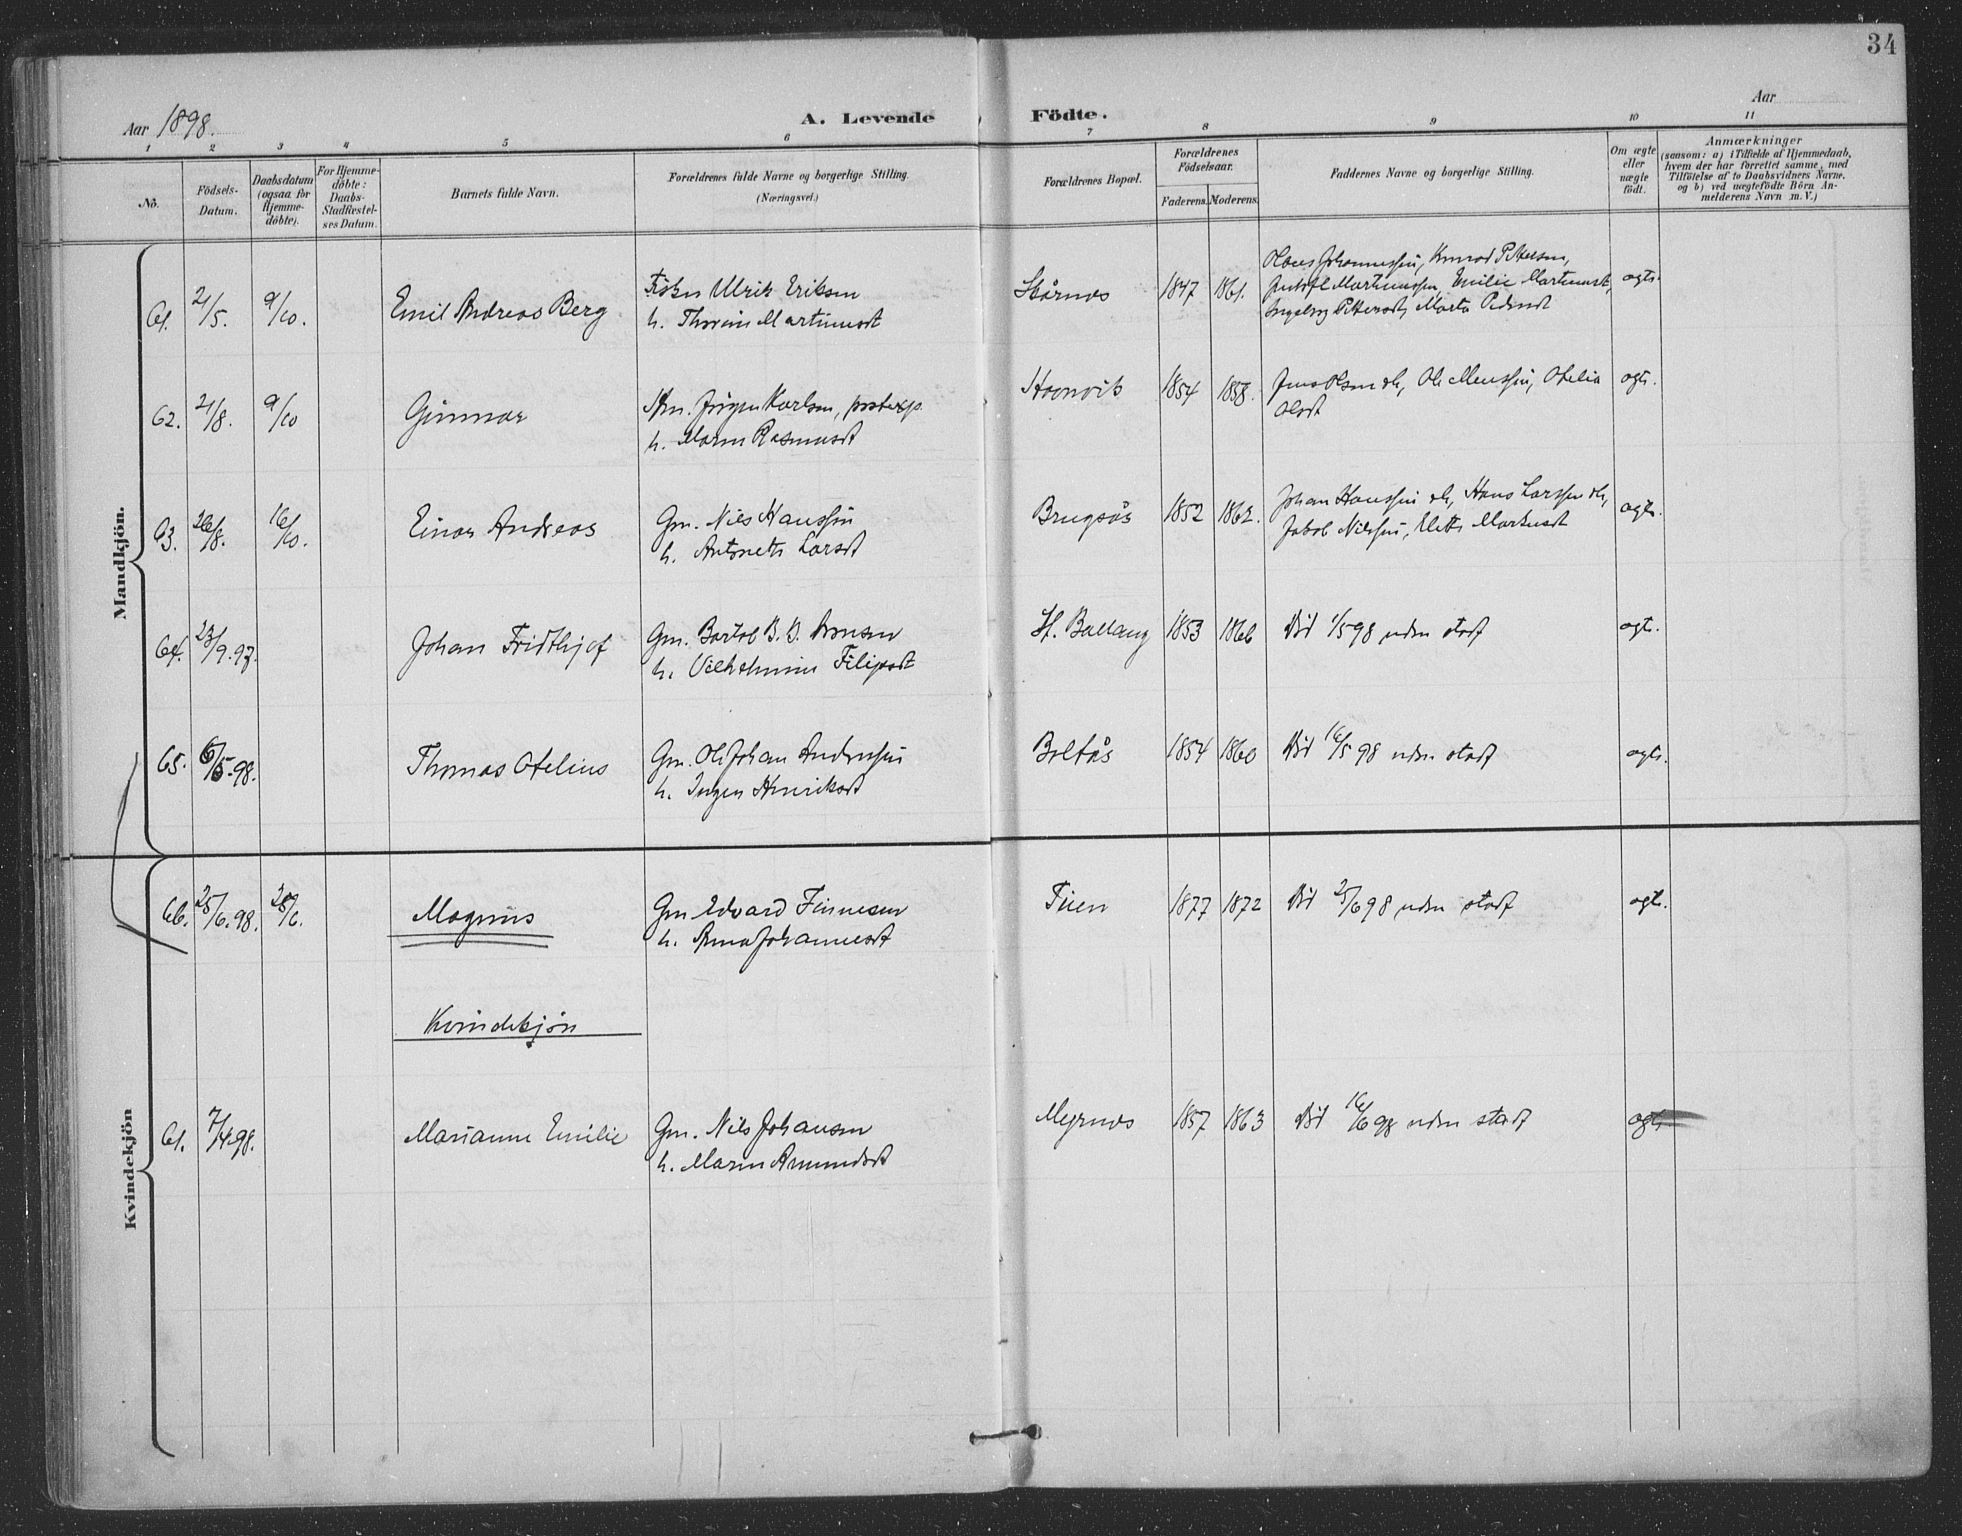 34
Aar 1898.
A. Levende Födte.
Aar
1 2 3 4 5 6 7 8 9 10 11
Nò.
Födsels-Datum.
Daabsdatum (ogsaa for Hjemmedöbte).
For Hjemmedöbte: Daabs-Stadfæstelses Datum.
Barnets fulde Navn.
Forældrenes fulde Navne og borgerlige Stilling.
(Næringsvei.)
Forældrenes Bopæl.
Forældrenes Födselsaar.
Faderens. Moderens.
Faddernes Navne og borgerlige Stilling.
Om ægte eller uægte födt.
Anmærkninger
(saasom: a) i Tilfælde af Hjemmedaab,
hvem der har forrettet samme, med
Tilföielse af to Daabsvidners Navne,
og b) ved uægtefödte Börn Anmelderens Navn m. V.)
Mandkjön.
61. 21/5. 9/10. Emil Andreas Berg
Fisker Ulrik Eriksen
h. Martinusdt
1847 1861.
Hans Johannessen, Konrad Pettersen,
Martinussen, Emilie Martinusdt,
Ingeborg Pettersdt, Marta Pedersdt
ægte.
62. 21/8. 9/10 Gunnar
Jörgen Karlsen, postexp.
h. Maren Rasmusdt
1854 1858.
Jens Olsen Ole Otelia
Olsdt
ægte.
63. 26/8. 16/10. Einar Andreas
Gm. Nils Hanssen
h. Antonette Larsdt
Brugsås 1852 1862.
Johan Hanssen Hans Larssen
Jakob Nilssen, Mette Markusdt
ægte.
64. 23/9.97. Johan Fridthjof
Gm. Bartol B. Arnsen
h. Vilhelmine Filipsdt
Ballang 1853 1866
Död 1/5 98 uden staf
ægte.
65. 6/5.98. Thomas Otelius
Gm. Ole Johan Andersen
h. Inger Henriksdt
Boltås 1854 1860
Död 16/5 98 uden staf
ægte.
66. 25/6.98. 28/6. Magnus
Gm Edvard Finnesen
h. Anna Johannesdt
1877 1872
Död 25/6 98 uden staf
ægte.
Kvindekjön
Kvindekjön
61. 7/4.98. Marianne Emilie
Gm. Nils Johansen
h. Maren Amundsdt
Myrnes 1857 1863
Död 16/6 98 uden staf
ægte